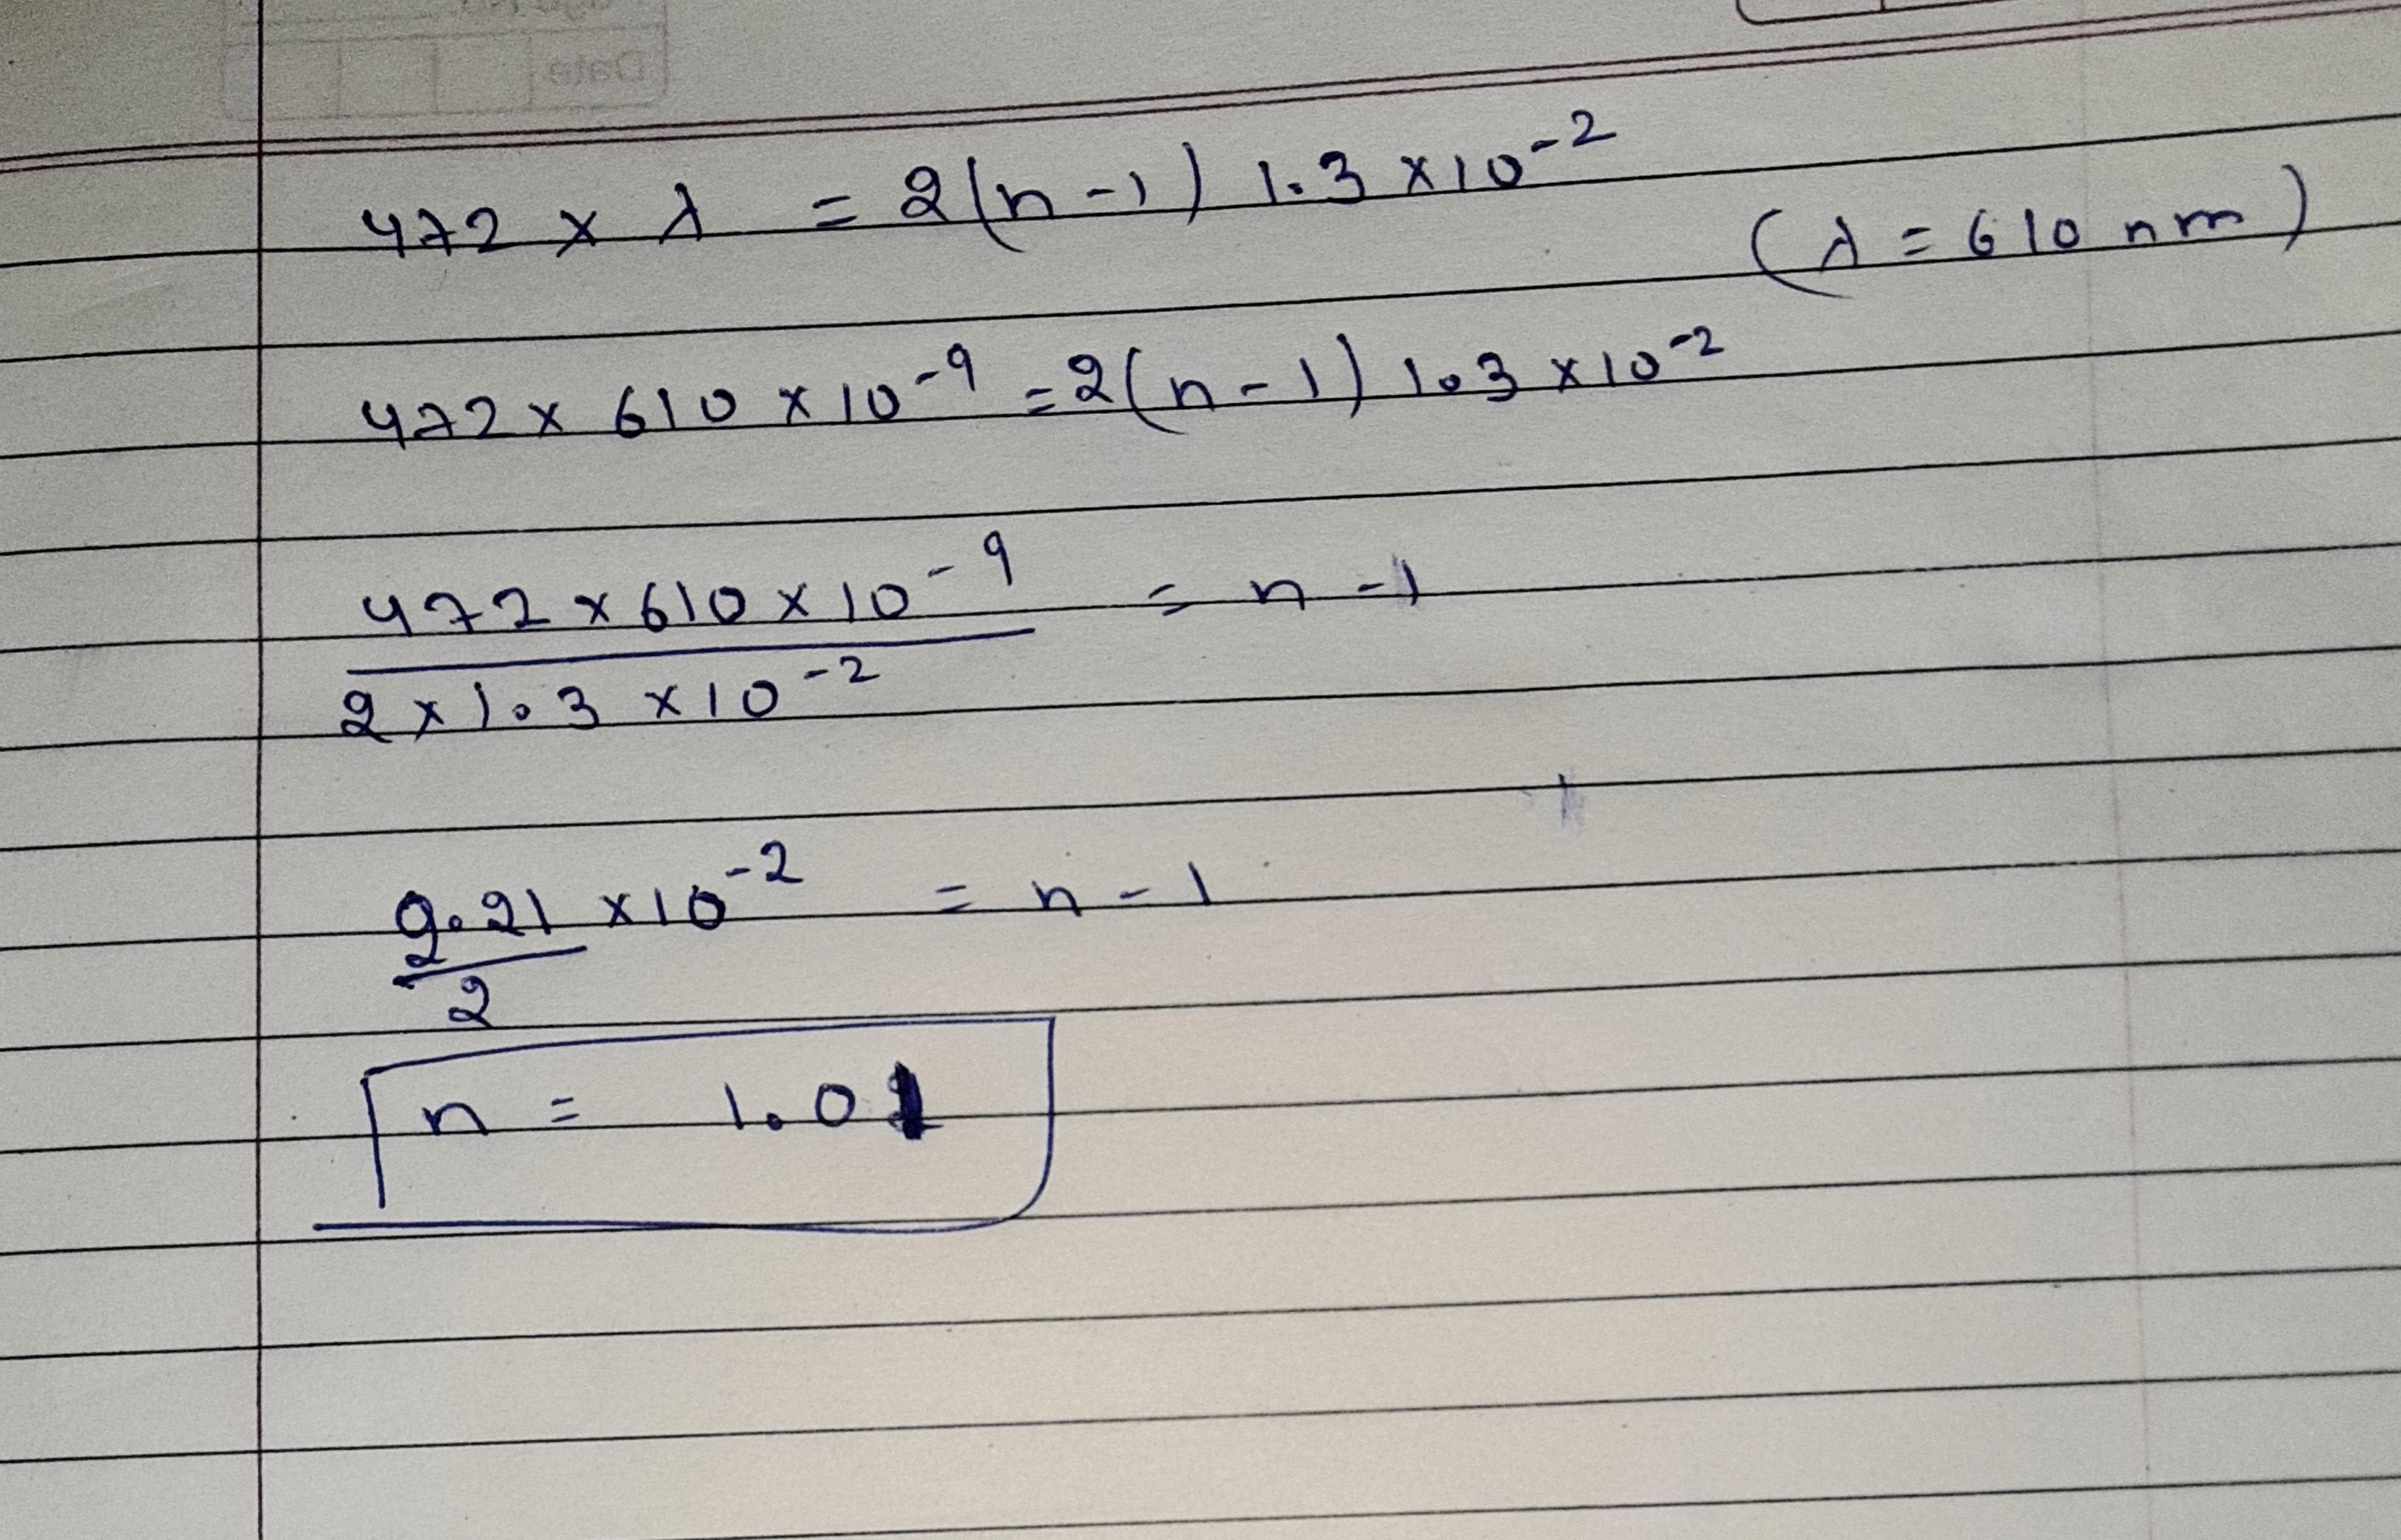 Date
472 × λ = 2(n-1) 1.3 × 10⁻²
(λ = 610 nm)
472 × 610 × 10⁻⁹ = 2(n-1) 1.3 × 10⁻²
472 × 610 × 10⁻⁹ = n-1
2 × 1.3 × 10⁻²
2.21 × 10⁻² = n-1
2
n = 1.01